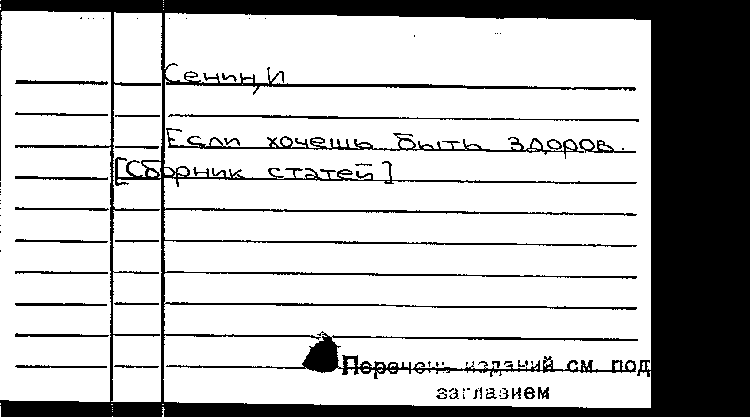 Сенин, И
Если хочешь быть здоров.
[Сборник статей]
Перечень изданий см. под
заглавием